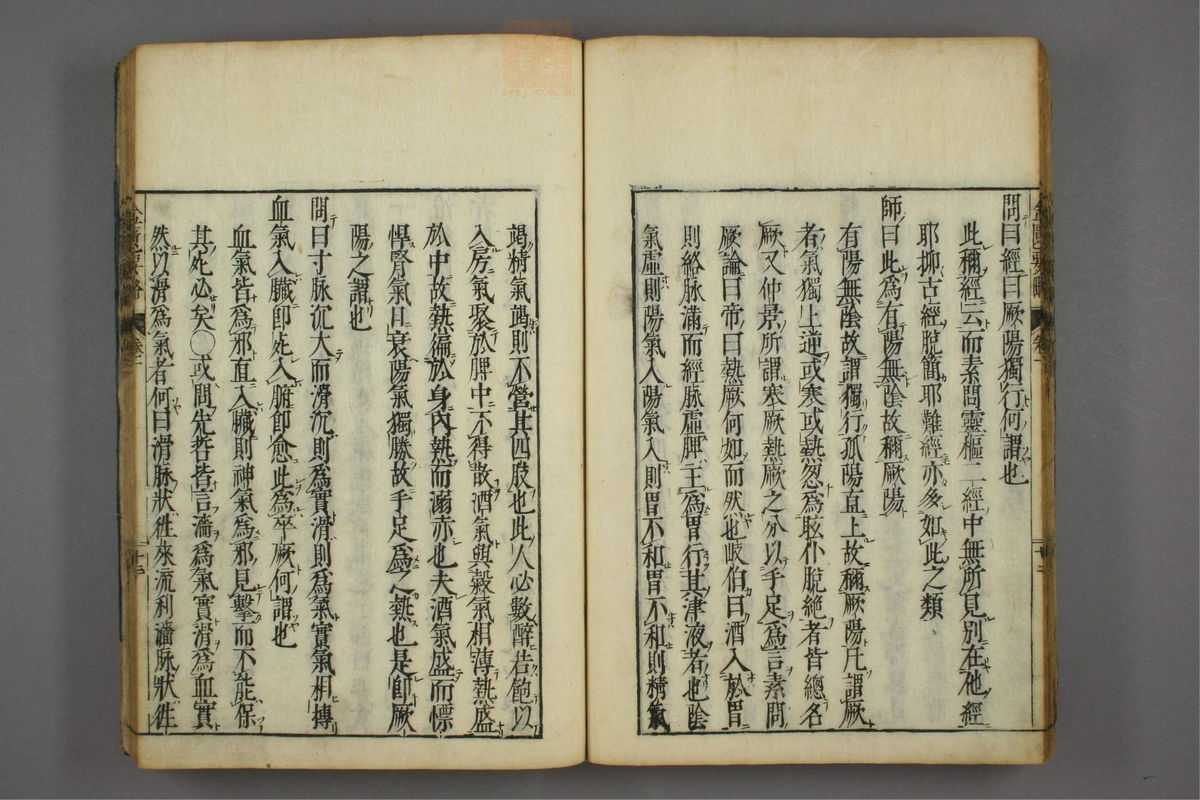 問曰經曰厥陽獨行何謂也
此稱經云而素問靈樞二經中無所見別在他經
耶抑古經脫簡耶難經亦多如此之類
師曰此為有陽無陰故稱厥陽
有陽無陰故謂獨行孤陽直上故稱厥陽凡謂厥
者氣獨上逆或寒或熱忽為眩仆脫絶者皆總名
厥又仲景所謂寒厥熱厥之分以手足為言素問
厥論曰帝曰熱厥何如而然也岐伯曰酒入於胃
則絡脉滿而經脉虛脾主為胃行其津液者也陰
氣虛則陽氣入陽氣入則胃不和胃不和則精氣
竭精氣竭則不營其四肢也此人必數醉若飽以
入房氣聚於脾中不得散酒氣與穀氣相薄熱盛
於中故熱徧於身內熱而溺赤也夫酒氣盛而慓
悍腎氣日衰陽氣獨勝故手足為之熱也是卽厥
陽之謂也
問曰寸脉沉大而滑沉則為實滑則為氣實氣相摶
血氣入臟卽死入腑卽愈此為卒厥何謂也
血氣皆為邪直入臟則神氣為邪見擊而不能保
其死必矣〇或問先哲皆言濇為氣實滑為血實
然以滑為氣者何曰滑脉狀徃來流利濇脉狀徃